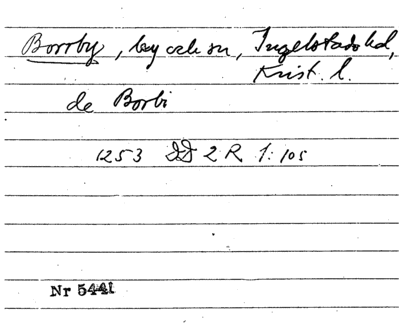 Borrby, by och sn, Ingelstads hd,
Krist. l.
de Borbi
1253 DD 2 R 1: 105
Nr 5441